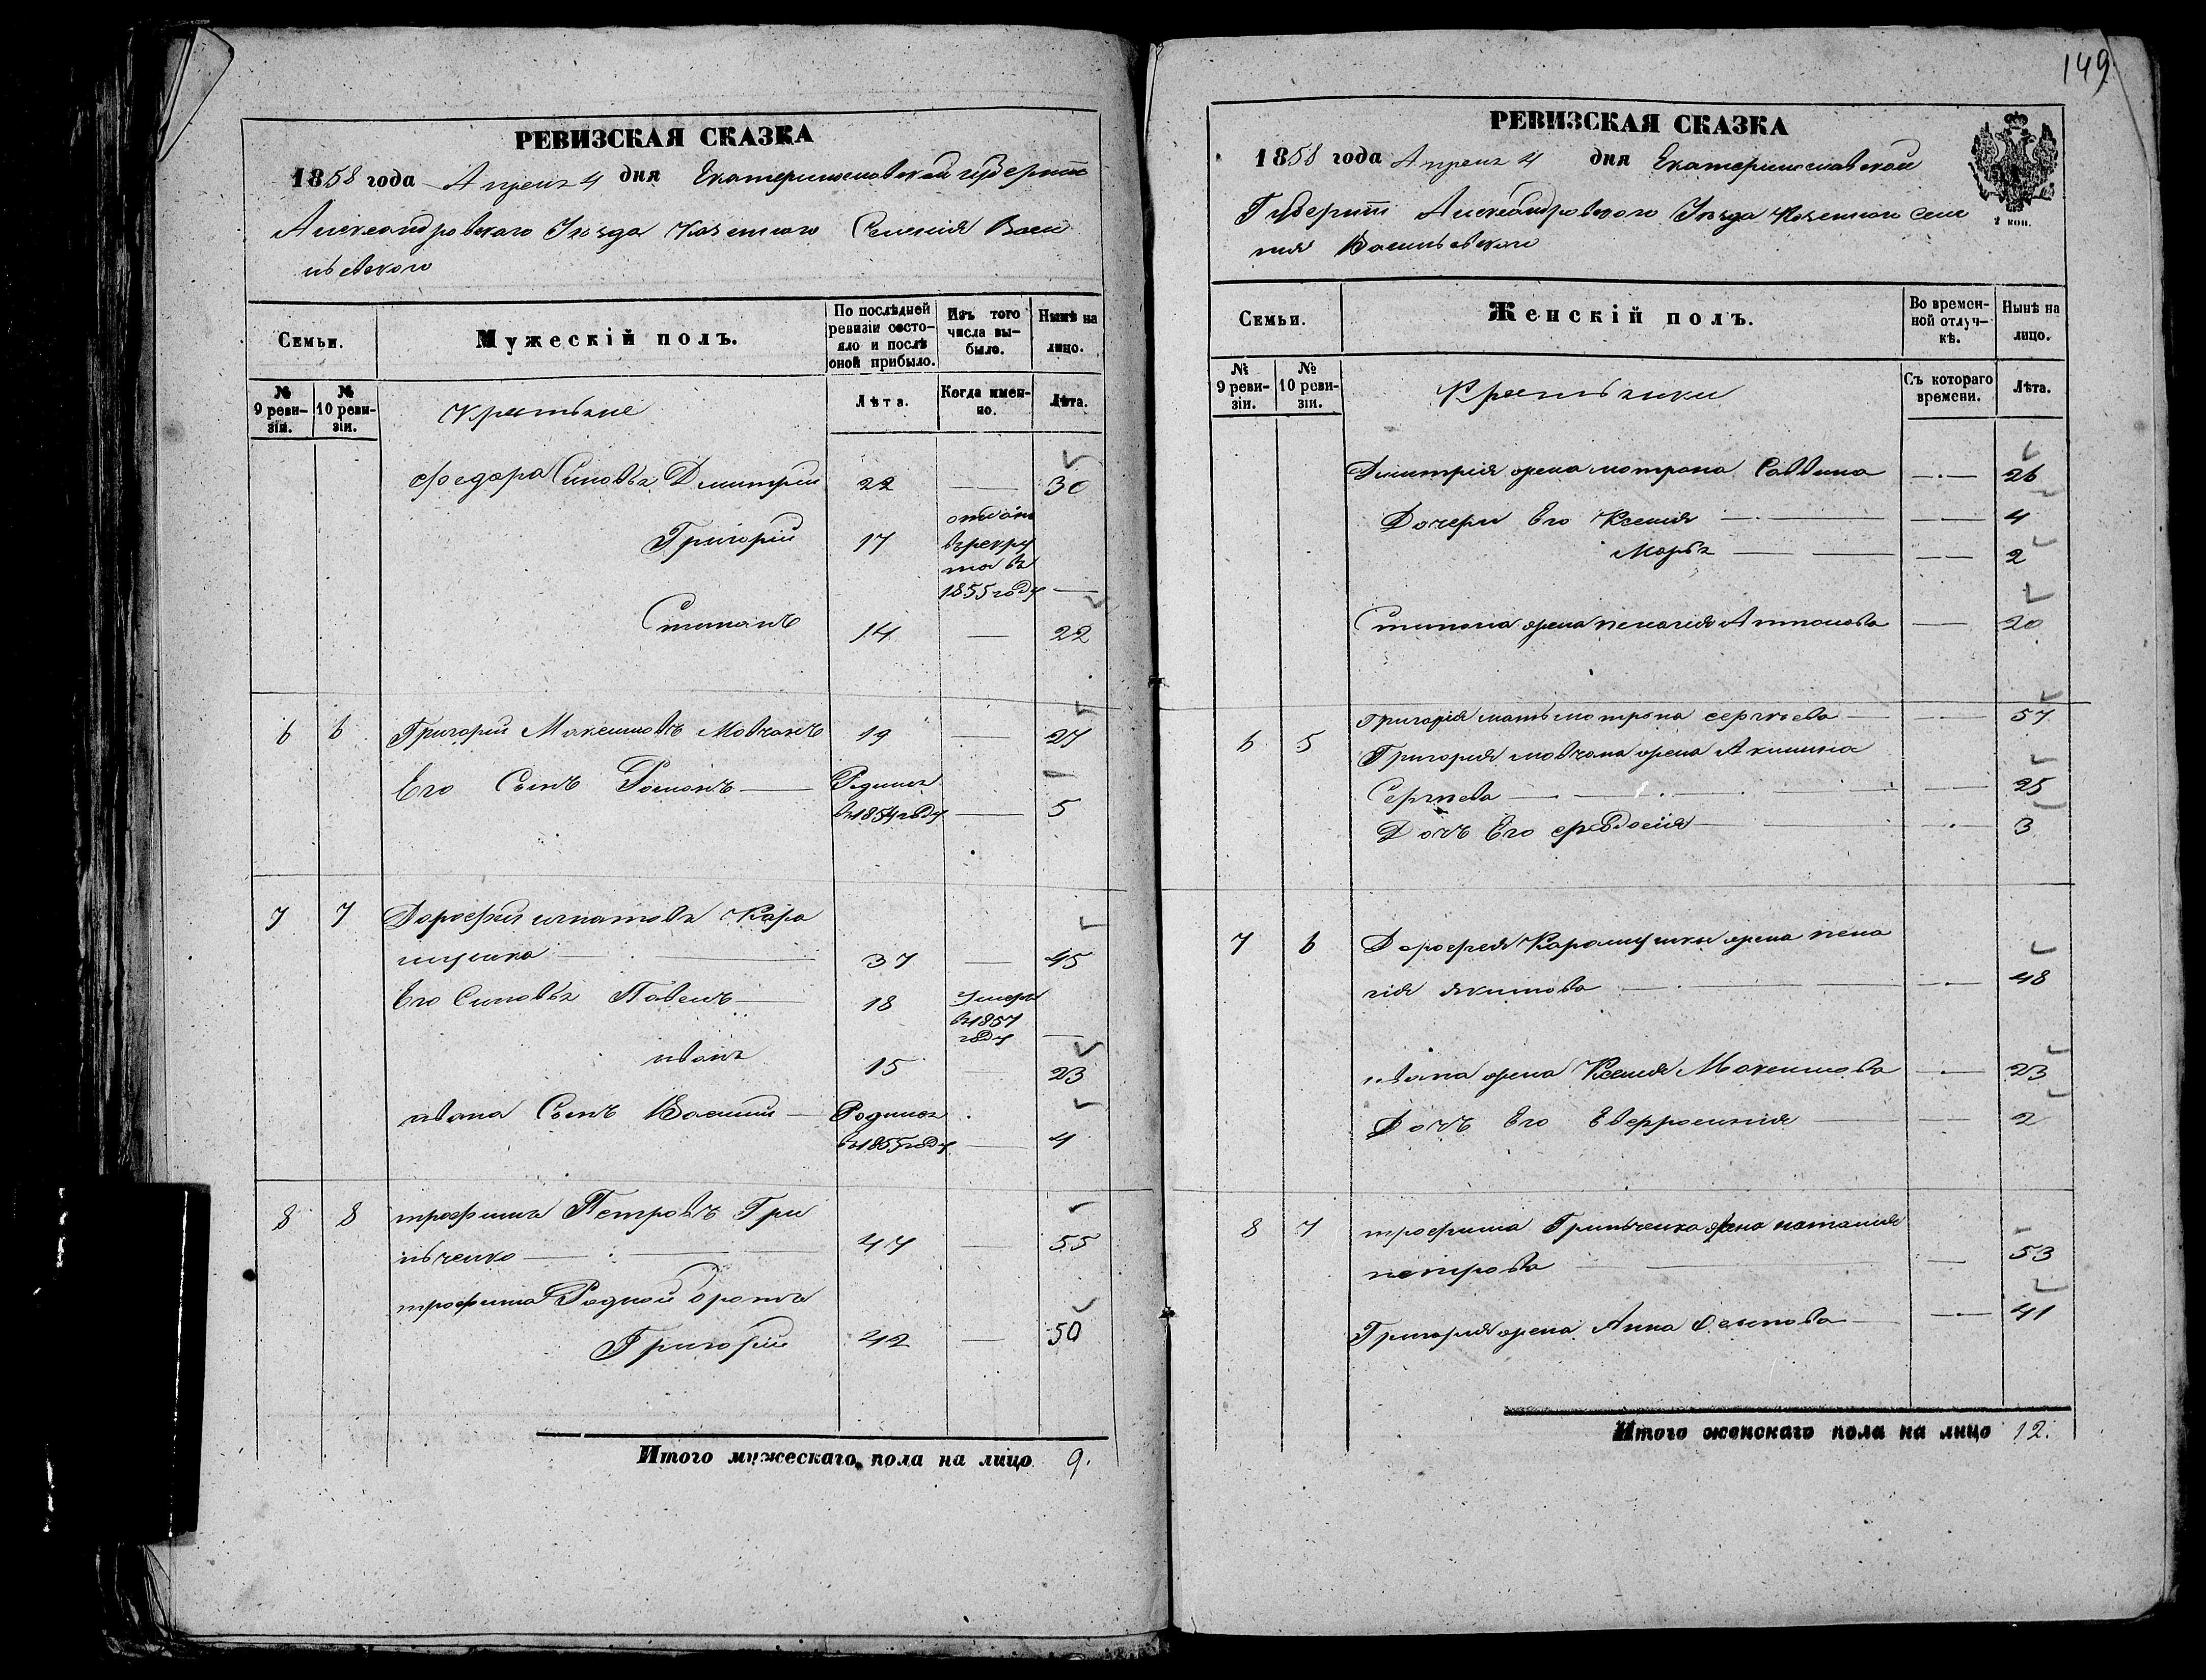 РЕВИЗСКАЯ СКАЗКА
1858 года Апреля 4 дня Екатеринославской губернiи
Александровскаго Уѣзда казеннаго Селенiя Васи
льевскаго
Семьи.
Мужескій полъ.
По послѣдней ревизіи состо-
яло и послѣ оной прибыло.
Изъ того числа вы-
было.
Нынѣ на лицо.
№ 9 реви-
зіи.
№ 10 реви-
зіи.
Крестьяне
Лѣта.
Когда имен-
но.
Лѣта.
Федора Сыновья Дмитрий 22 — 30
Григорий 17 отдан
въ рекру
та въ
1855 году —
Степанъ 14 — 22
6 6 Григорий Максимовъ Мовчанъ 19 — 27
Его Сынъ Романъ — Родился
въ 1854 году — 5
7 7 Дорофий игнатовъ Кара
мушка — 37 — 45
Его Сыновья Павелъ — 18 Умеръ
въ 1857
году —
иванъ 15 — 23
ивана Сынъ Василий — Родился
въ 1855 году — 4
8 8 трофимъ Петровъ Гри
нченко — 47 — 55
трофима Родной братъ
Григорий 42 — 50
Итого мужескаго пола на лицо 9.
149
РЕВИЗСКАЯ СКАЗКА
2 коп.
1858 года Апреля 4 дня Екатеринославской
Губернiи Александровскаго Уѣзда Казеннаго Селе
нiя Васильевскаго
Семьи.
Женскій полъ.
Во времен-
ной отлуч-
кѣ.
Нынѣ на лицо.
№ 9 реви-
зіи.
№ 10 реви-
зіи.
Крестьянки
Съ котораго времени.
Лѣта.
Дмитрiя жена мотрона Саввина — 26
Дочери Его Ксения — 4
Марья — 2
Степана жена пелагiя Антонова — 20
Григорiя мать мотрона сергѣева — — 57
6 5 Григория мовчана жена Акилина
Сергѣева — — 25
Дочъ Его февдосiя — — 3
7 6 Дорофея Карамушки жена пела
гiя якимова — — 48
ивана жена Ксения Максимова — 23
Дочъ Его Евфросиния — — 2
8 7 трофима Гринченка жена наталия
петрова — — 53
Григория жена Анна Осипова — — 41
Итого женскаго пола на лицо 12.